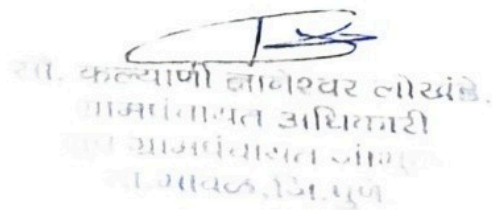 सौ. कल्याणी ज्ञानेश्वर लोखंडे.
ग्रामपंचायत अधिकारी
ग्रामपंचायत
मावळ, जि. पुणे